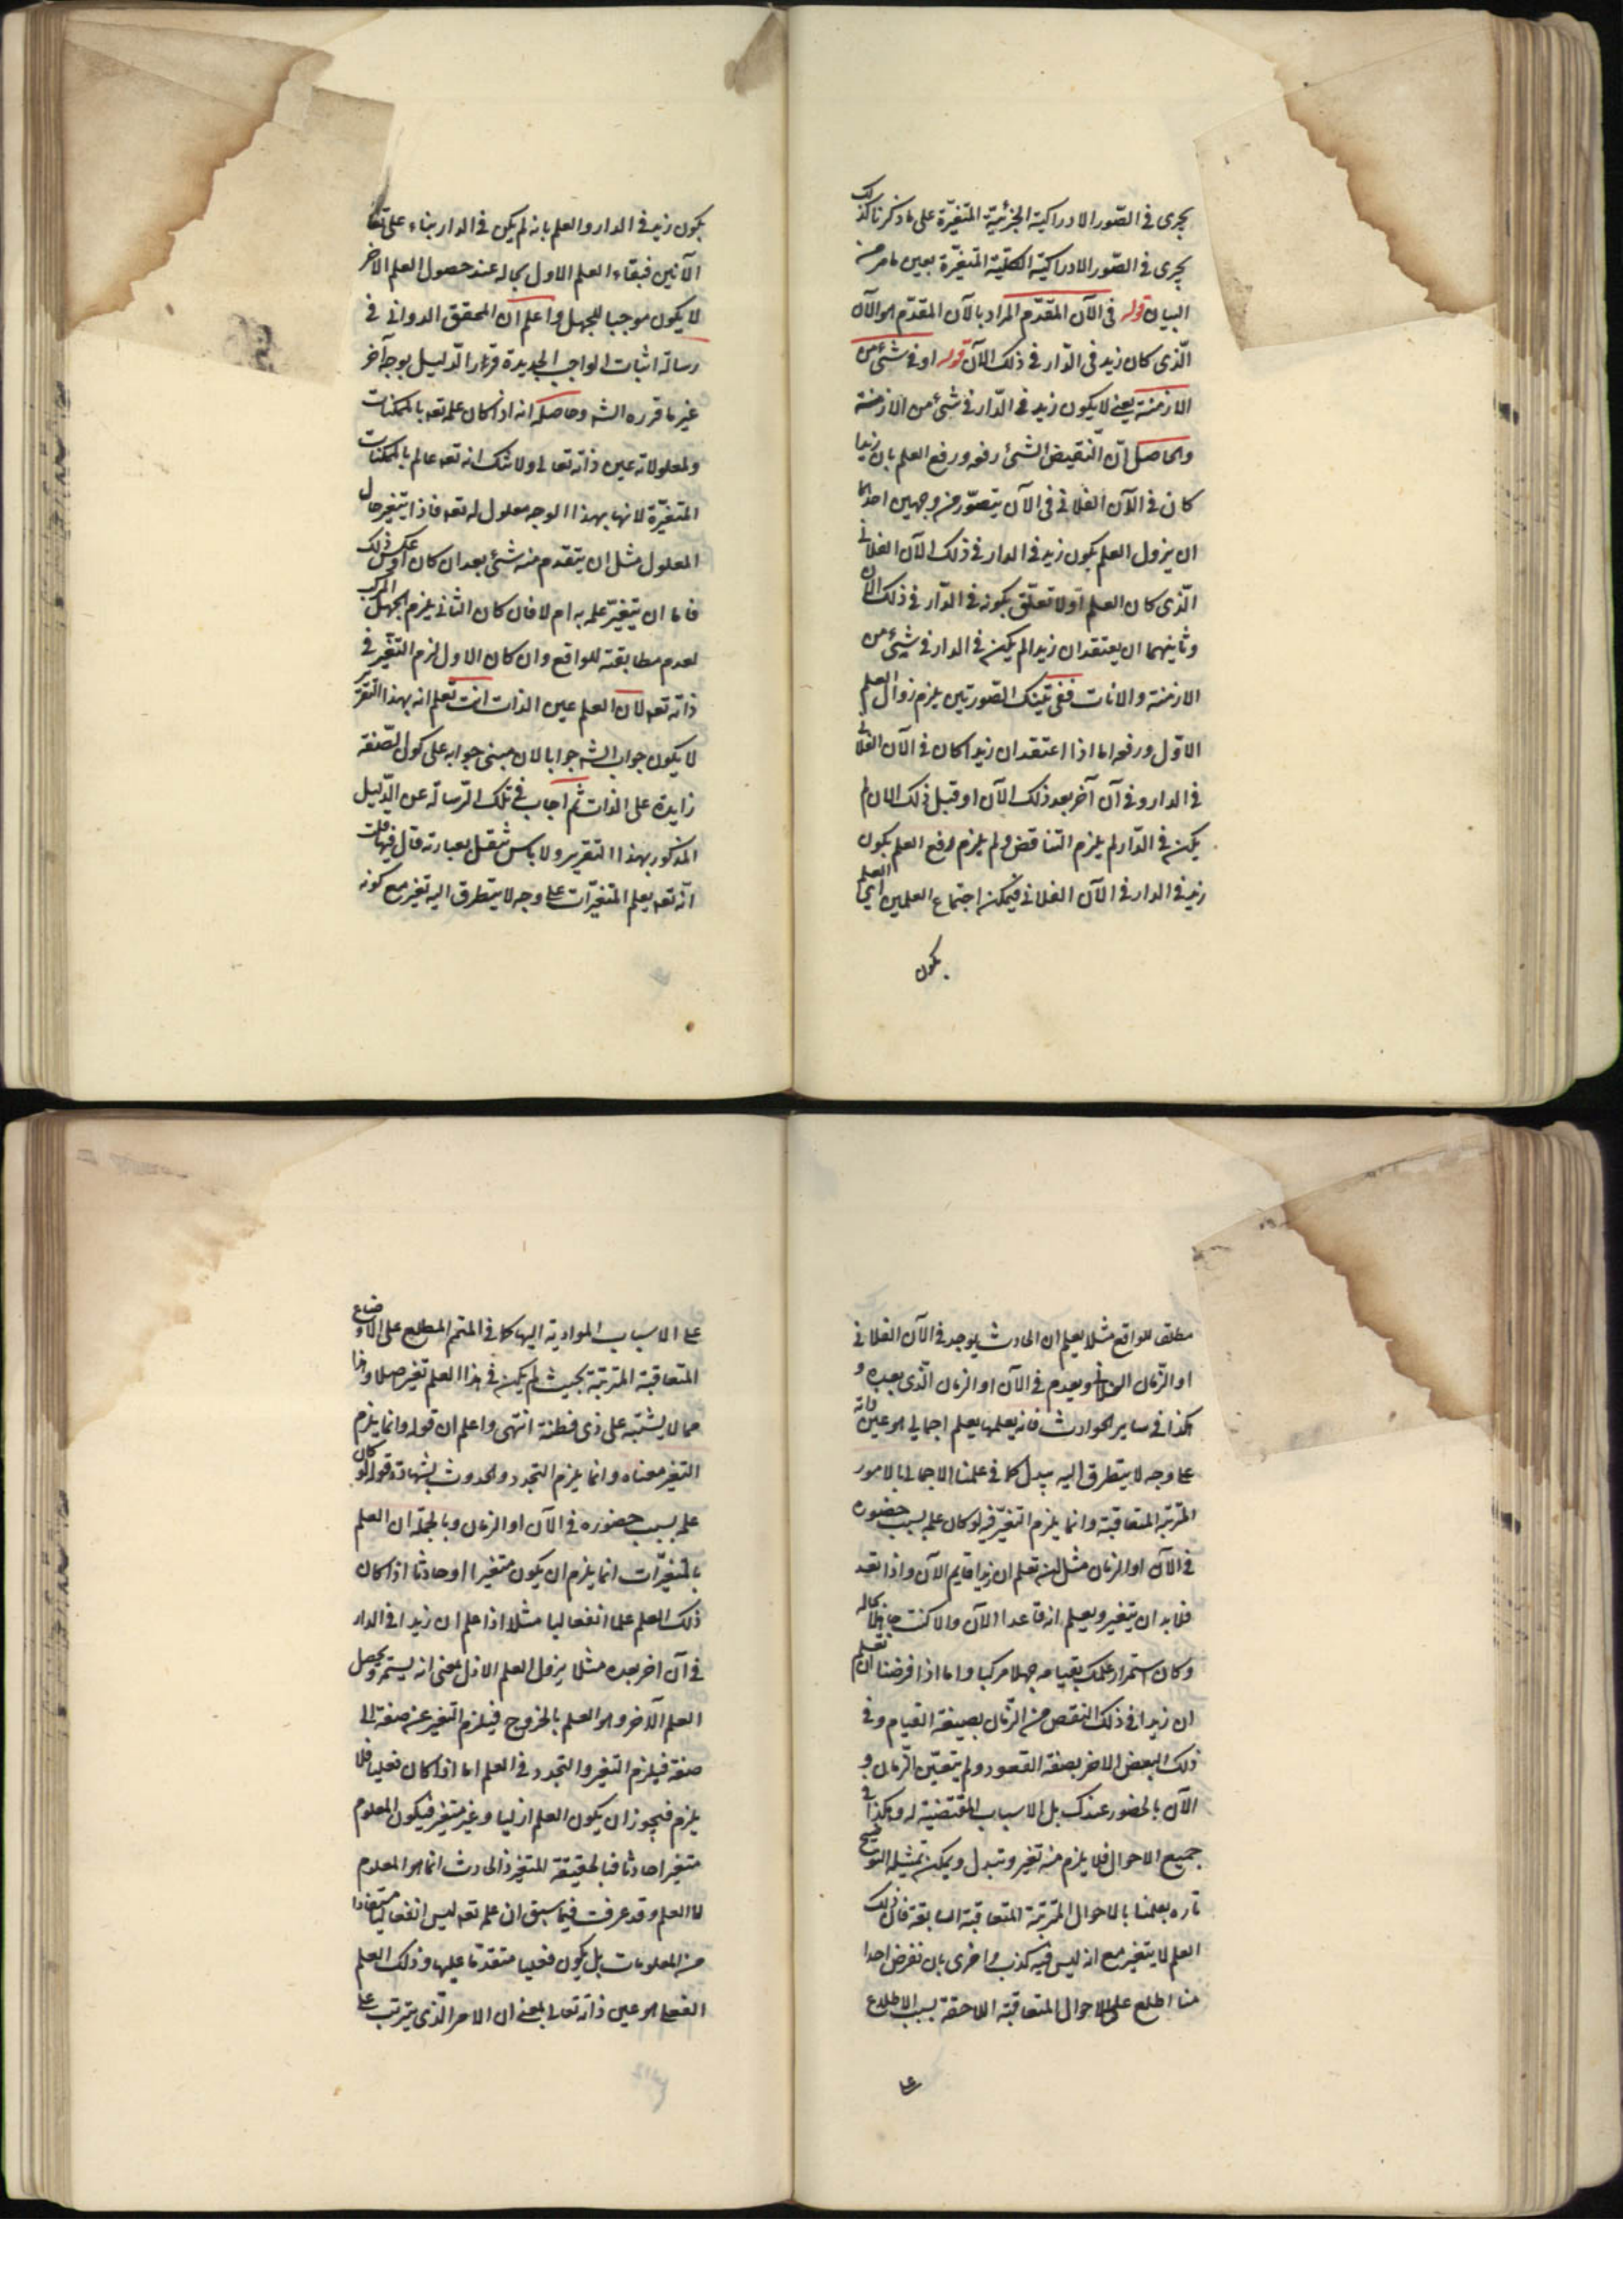 يجرى فى الصّور الادراكية الجزئيّة المتغيّرة على ما ذكرنا كذلك
يجرى فى الصّور الادراكيّة الكلّية المتغيّرة بعين ما مر من
البيان قوله فى الآن المقدّم المراد بالآن المقدّم هو الآن
الّذى كان زيد فى الدّار فى ذلك الآن قوله او فى شئ من
الازمنة يعنى لا يكون زيد فى الدّار فى شئ من الازمنة
والحاصل انّ النّقيض الشئ رفعه ورفع العلم بان زيدا
كان فى الآن الفلانى فى الآن يتصوّر من وجهين احدهما
ان يزول العلم بكون زيد فى الدار فى ذلك الآن الفلانى
الّذى كان العلم اولا تعلّق بكونه فى الدّار فى ذلك الآن
وثانيهما ان يعتقد ان زيدا لم يكن فى الدار فى شئ من
الازمنة والانات ففى تينك الصّورتين يلزم زوال العلم
الاوّل ورفعه اما اذا اعتقد ان زيدا كان فى الآن الفلانى
فى الدار وفى آن آخر بعد ذلك الآن او قبل ذلك الان لم
يكن فى الدّار لم يلزم التناقض ولم يلزم رفع العلم بكون
زيد فى الدار فى الآن الفلانى فيمكن اجتماع العلمين اى العلم
بكون
يكون زيد فى الدار والعلم بانه لم يكن فى الدار بناء على
الآنين فبقاء العلم الاول بحاله عند حصول العلم الآخر
لا يكون موجبا للجهل واعلم ان المحقق الدوانى فى
رسالة اثبات الواجب الجديدة قرّر الدّليل بوجه آخر
غير ما قرره الشه وحاصله انه اذا كان علمه تعه بالممكنات
ومعلولاته عين ذاته تعالى ولا شك انه تعه عالم بالممكنات
المتغيّرة لانها بهذا الوجه معلول له تعه فاذا يتغير حال
المعلول مثل ان يتقدم منه شئ بعد ان كان او عكس ذلك
فاما ان يتغيّر علمه به ام لا فان كان الثانى يلزم الجهل المركب
لعدم مطابقته للواقع وان كان الاول لزم التغيّر فى
ذاته تعه لان العلم عين الذات انت تعلم انه بهذا التقرير
لا يكون جواب الشه جوابا لان مبنى جوابه على كون الصّفة
زايدة على الذات ثم اجاب فى تلك الرّسالة عن الدّليل
المذكور بهذا التقرير ولا باس بنقل عبارته قال فيها قلت
انّه تعه يعلم المتغيّرات على وجه لا يتطرق اليه تغير مع كونه
مطابق للواقع مثلا يعلم ان الحادث يوجد فى الآن الفلانى
او الزّمان الفلانى ويعدم فى الآن او الزمان الّذى بعده و
هكذا فى ساير الحوادث فانه يعلمها بعلم اجمالى هو عين ذاته
على وجه لا يتطرق اليه تبدل كما فى علمنا الاجمالى بالامور
المترتبة المتعاقبة وانما يلزم التغيّر فيه لو كان علمه بسبب حضوره
فى الآن او الزمان مثل انه تعلم ان زيدا قايم الآن واذا قعد
فلا بد ان يتغير ويعلم انه قاعد الآن والا كنت جاهلا بحاله
وكان استمرار علمك بقيامه جهلا مركبا واما اذا فرضنا ان تعلم
ان زيدا فى ذلك من الزّمان بصفة القيام وفى
ذلك البعض الاخر بصفة القعود ولم يتعيّن الزّمان و
الآن بالحضور عندك بل الاسباب المقتضية له وهكذا فى
جميع الاحوال فلا يلزم منه تغير وتبدل ويمكن تمثيله التوضيح
تاره بعلمنا بالاحوال المترتبة المتعاقبة السابقة فان ذلك
العلم لا يتغير مع انه ليس فيه كذب واخرى بان نفرض احدا
منا اطلع على الاحوال المتعاقبة اللاحقة بسبب الاطلاع
على
على الاسباب الموادية اليها كما فى المنجم المطلع على الاوضاع
المتعاقبة المترتبة بحيث لم يكن فى هذا العلم تغير اصلا وهذا
مما لا يشتبه على ذى فطنة انتهى واعلم ان قوله وانما يلزم
التغير معناه وانما يلزم التجدد والحدوث بشهادة قوله لو كان
علمه بسبب حضوره فى الآن او الزمان وبالجملة ان العلم
بالمتغيّرات انما يلزم ان يكون متغيرا او حادثا اذا كان
ذلك العلم علما انفعاليا مثلا اذا علم ان زيدا فى الدار
فى آن اخر بعده مثلا يزول العلم الاول بمعنى انه يستمر ويحصل
العلم الآخر وهو العلم بالخروج فيلزم التغير عن صفة الى
صفة فيلزم التغير والتجدد فى العلم اما اذا كان فعليا فلا
يلزم فيجوز ان يكون العلم ازليا وغير متغير فيكون المعلوم
متغيرا حادثا فبالحقيقة المتغير والحادث انما هو المعلوم
لا العلم وقد عرفت فيما سبق ان علمه تعه ليس انفعاليا مستفادا
من المعلومات بل يكون فعليا متقدّما عليها وذلك العلم
الفعلى هو عين ذاته تعالى بمعنى ان الامر الّذى يترتب على